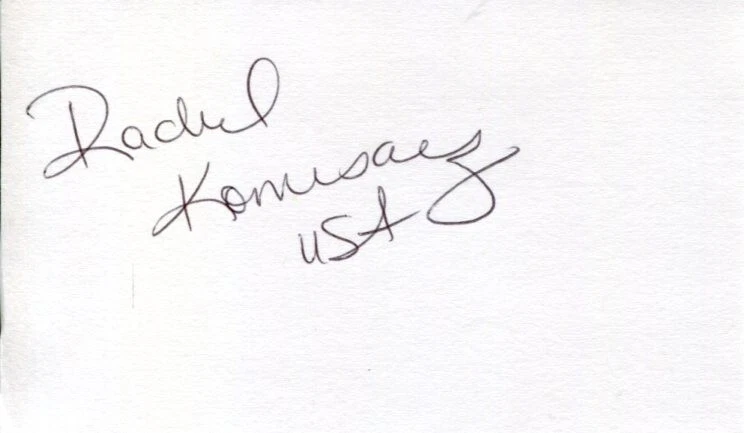 Rachel
Komisarz
USA